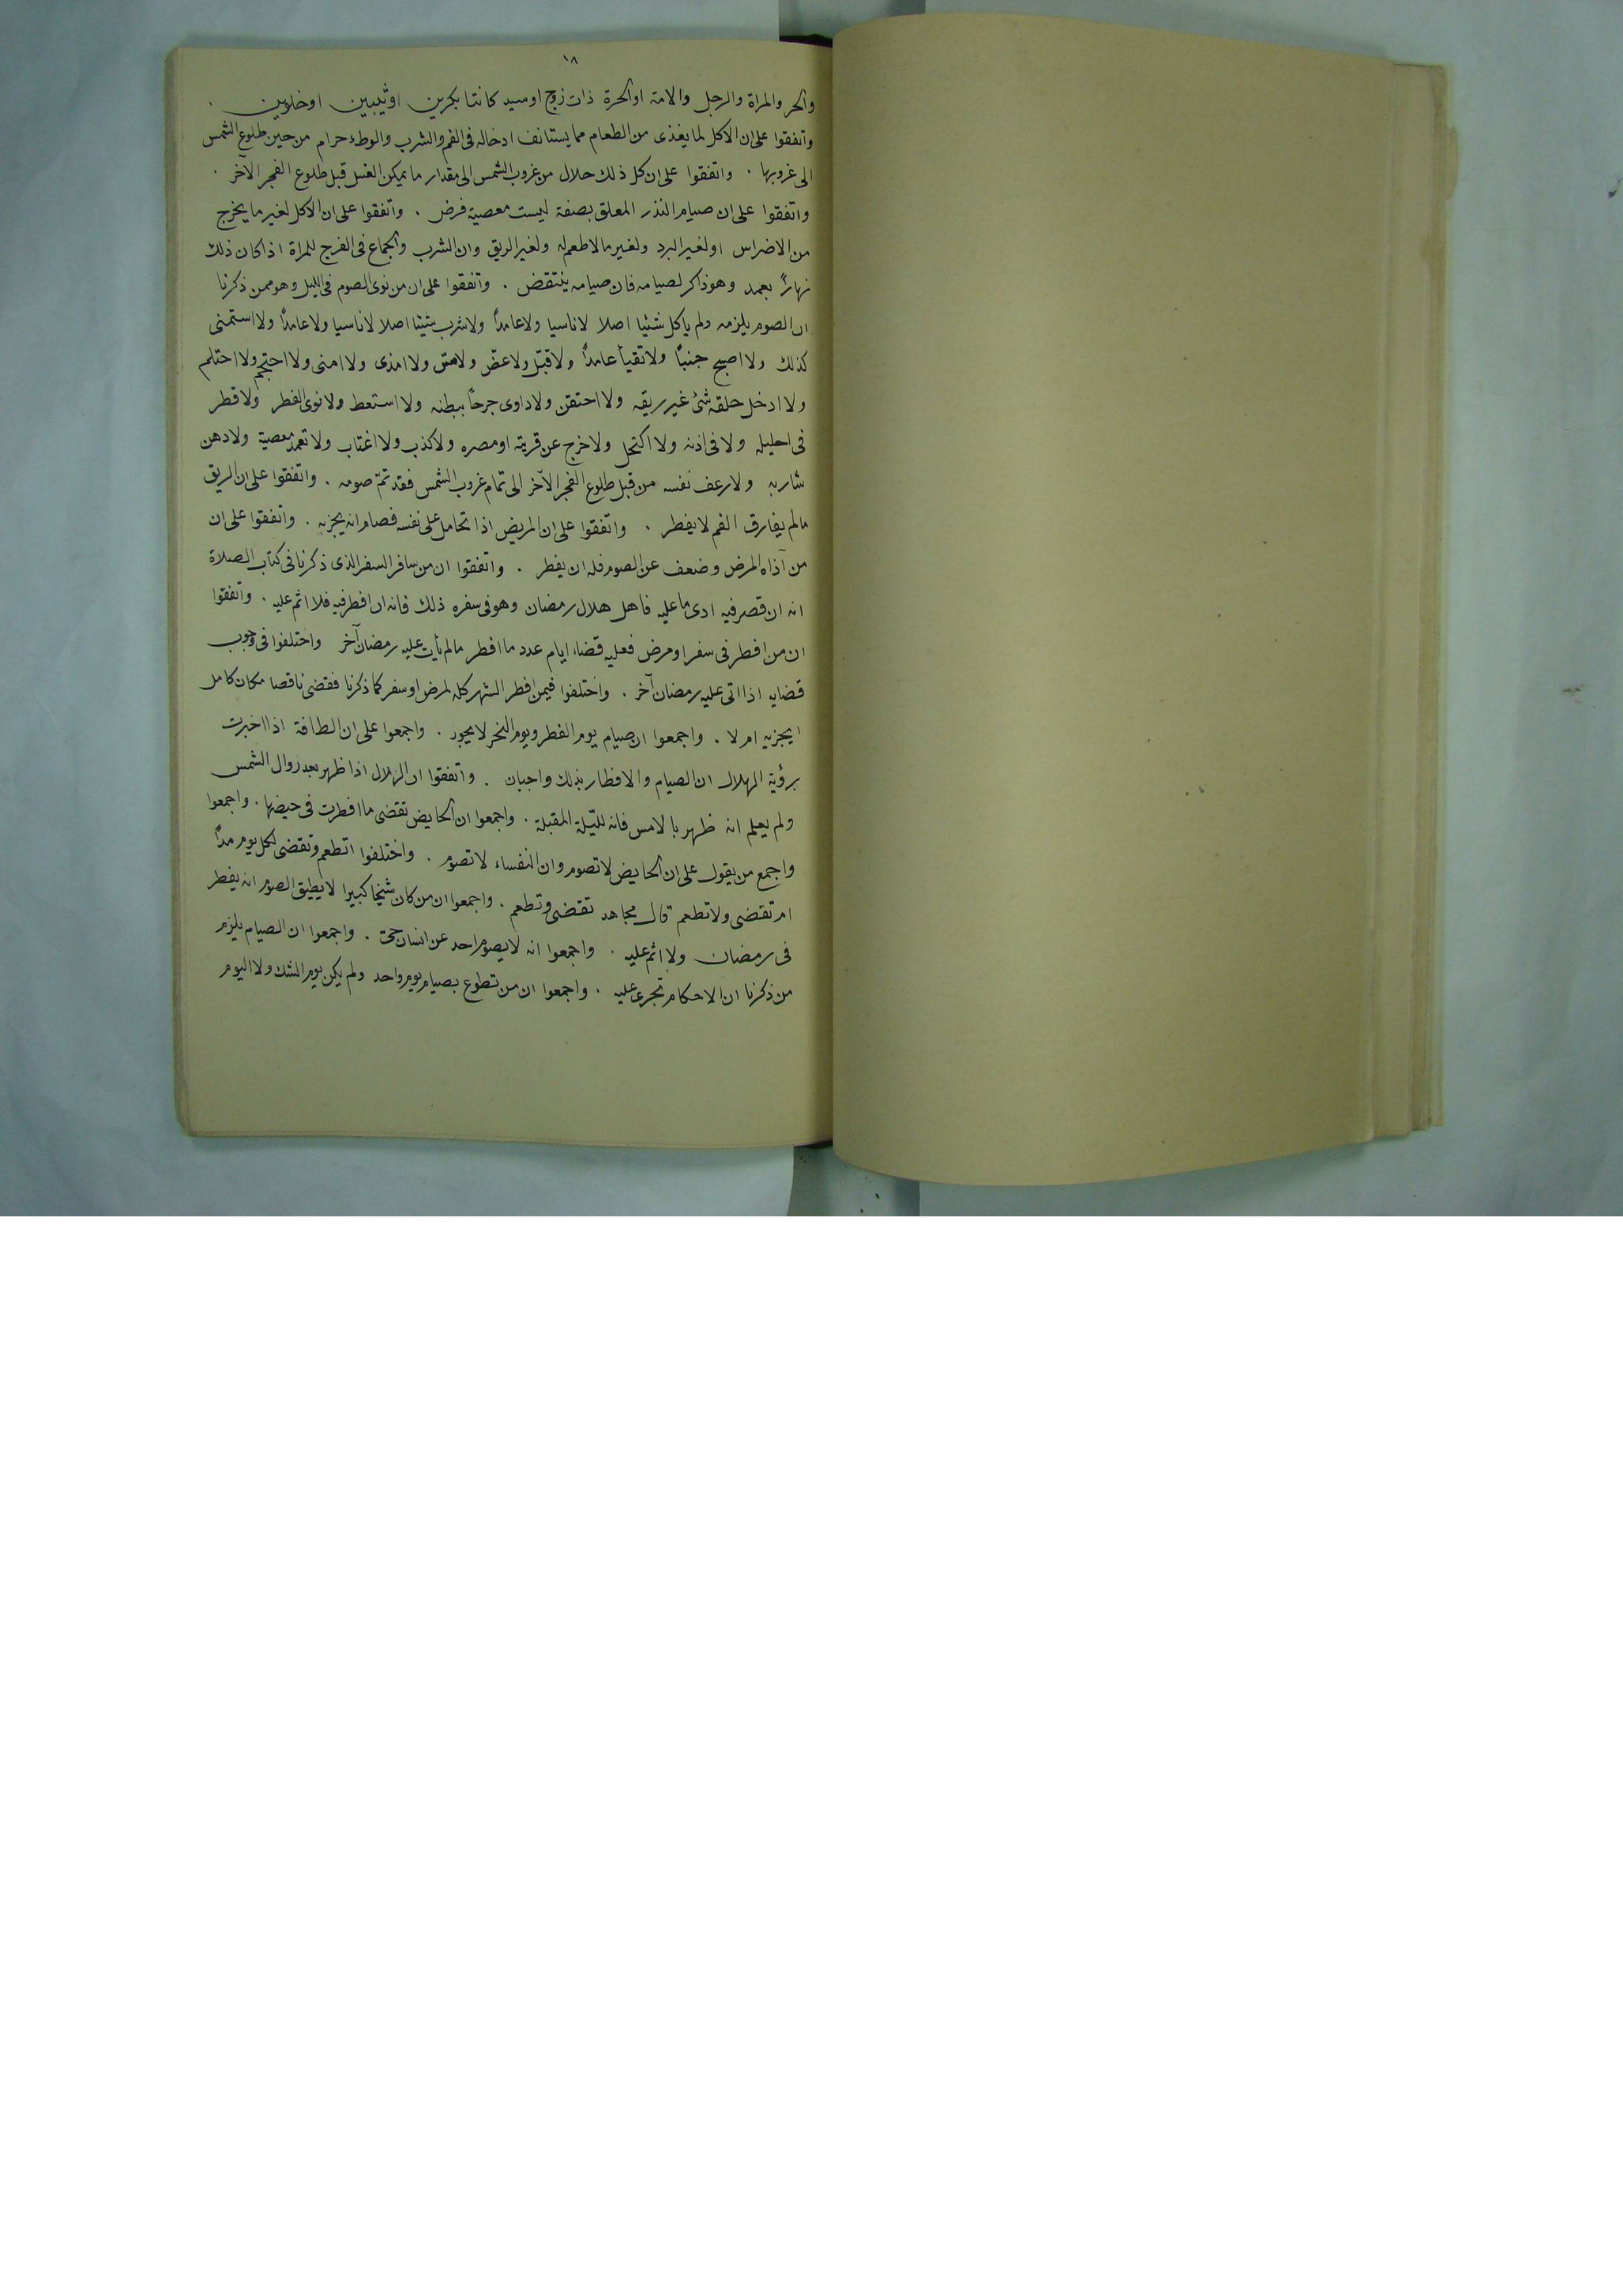 ١٨
والحر والمراة والرجل والامة او الحرة ذات زوج او سيد كانتا بكرين او ثيبين او خلوين .
واتفقوا على ان الاكل لما يغذى من الطعام مما يستانف ادخاله فى الفم والشرب والوطء حرام من حين طلوع الشمس
الى غروبها . واتفقوا على ان كل ذلك حلال من غروب الشمس الى مقدار ما يمكن الغسل قبل طلوع الفجر الآخر .
واتفقوا على ان صيام النذر المعلق بصفة ليست معصية فرض . واتفقوا على ان الاكل لغير ما يخرج
من الاضراس او لغير البرد ولغير ما لا طعم له ولغير الريق وان الشرب والجماع فى الفرج للمراة اذا كان ذلك
نهارًا بعمد وهو ذاكر لصيامه فان صيامه ينتقض . واتفقوا على ان من نوى الصوم فى الليل وهو ممن ذكرنا
ان الصوم يلزمه ولم ياكل شئيا اصلا لا ناسيا ولا عامدًا ولا شرب شيئا اصلا لا ناسيا ولا عامدًا ولا استمنى
كذلك ولا اصبح جنبًا ولا تقيأ عامدًا ولا قبّل ولا عضّ ولا مسّ ولا امذى ولا امنى ولا احتجم ولا احتلم
ولا ادخل حلقه شئ غير ريقه ولا احتقن ولا داوى جرحًا ببطنه ولا استعط ولا نوى الفطر ولا قطر
فى احليله ولا فى اذنه ولا اكتحل ولا خرج عن قريته او مصره ولا كذب ولا اغتاب ولا تعمد معصية ولا دهن
شاربه ولا رعف نفسه من قبل طلوع الفجر الآخر الى تمام غروب الشمس فقد تمّ صومه . واتفقوا على ان الريق
ما لم يفارق الفم لا يفطر . واتفقوا على ان المريض اذا تحامل على نفسه فصام انه يجزيه . واتفقوا على ان
من آذاه المرض وضعف عن الصوم فله ان يفطر . واتفقوا ان من سافر السفر الذى ذكرنا فى كتاب الصلاة
انه ان قصر فيه ادى ما عليه فاهل هلال رمضان وهو فى سفره ذلك فانه ان افطر فيه فلا اثم عليه . واتفقوا
ان من افطر فى سفر او مرض فعليه قضاء ايام عدد ما افطر ما لم يأت عليه رمضان آخر واختلفوا فى وجوب
قضايه اذا اتى عليه رمضان آخر . واختلفوا فيمن افطر الشهر كله لمرض او سفر كما ذكرنا فقضى ناقصا مكان كامل
ايجزيه ام لا . واجمعوا ان صيام يوم الفطر ويوم النحر لا يجوز . واجمعوا على ان الطافة اذا اخبرت
برؤية الهلال ان الصيام والافطار بذلك واجبان . واتفقوا ان الهلال اذا ظهر بعد زوال الشمس
ولم يعلم انه ظهر بالامس فانه لليّلة المقبلة . واجمعوا ان الحايض تقضى ما افطرت فى حيضها . واجمعوا
واجمع من يقول على ان الحايض لا تصوم وان النفساء لا تصوم . واختلفوا اتطعم وتقضى لكل يوم مدًا
ام تقضى ولا تطعم قال مجاهد تقضى وتطعم . واجمعوا ان من كان شيخا كبيرا لا يطيق الصوم انه يفطر
فى رمضان ولا اثم عليه . واجمعوا انه لا يصوم احد عن انسان حىّ . واجمعوا ان الصيام يلزم
من ذكرنا ان الاحكام تجرى عليه . واجمعوا ان من تطوع بصيام يوم واحد ولم يكن يوم الشك ولا اليوم